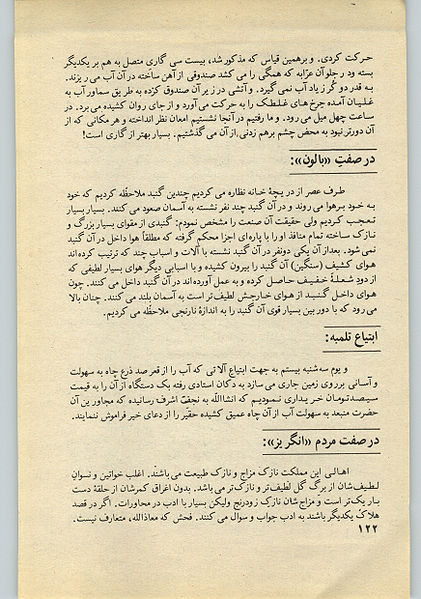 حرکت کردی. و برهمین قیاس که مذکور شد، بیست سی گاری متصل به هم بر یکدیگر
بسته و در جلو آن عرّابه که همگی را می کشد صندوقی از آهن ساخته در آن آب می ریزند.
به قدر دو کُر زیاد آب نمی گیرد. و آتشی در زیر آن صندوق کرده به طریق سماور آب به
غلیان آمده چرخ های غلطک را به حرکت می آورد و از جای روان کشیده می برد. در
ساعت چهل میل می رود. و ما رفتیم در آنجا نشستیم امعان نظر انداخته و هر مکانی که از
آن دورتر نبود به محض چشم برهم زدنی از آن می گذشتیم. بسیار بهتر از گاری است!
در صفتِ «بالون»:
طرف عصر از دریچهٔ خانه نظاره می کردیم چندین گنبد ملاحظّه کردیم که خود
به خود برهوا می روند و در آن گنبد چند نفر نشسته به آسمان صعود می کنند. بسیار بسیار
تعجب کردیم ولی حقیقت آن صنعت را مشخص نمودم: گنبدی از مقوای بسیار بزرگ و
نازک ساخته تمام منافذ او را با پاره ای اجزا محکم گرفته که مطلقاً هوا داخل در آن گنبد
نمی شود. بعد از آن یکی دونفر در آن گنبد نشسته با آلات و اسباب چند که ترتیب کرده اند
هوای کشیف (سنگین) آن گنبد را بیرون کشیده و با اسبابی دیگر هوای بسیار لطیفی که
از دود شعلهٔ خفیف حاصل کرده و به عمل آورده اند در آن گنبد داخل می کنند. چون
هوای داخل گنبد از هوای خارجش لطیف تر است به آسمان بلند می کنند. چنان بالا
می رود که با دور بین بسیار قوی آن گنبد را به اندازهٔ نارنجی ملاحظّه می کردیم.
ابتیاع تلمبه:
و یوم سه شنبه بیستم به جهت ابتیاع آلاتی که آب را از قعر صد ذرع چاه به سهولت
و آسانی برروی زمین جاری می سازد به دکان استادی رفته یک دستگاه از آن را به قیمت
سیصد تومان خریداری نمودیم که انشاالله به نجف اشرف رسانیده که مجاورین آن
حضرت منبعد به سهولت آب از آن چاه عمیق کشیده حقیر را از دعای خیر فراموش ننمایند.
در صفت مردم «انگریز»:
اهالی این مملکت نازک مزاج و نازک طبیعت می باشند. اغلب خواتین و نسوان
لطیف شان از برگ گل لطیف تر و نازک تر می باشد. بدون اغراق کمرشان از حلقهٔ دست
باریک تر است و مزاج شان نازک زودرنج ولیکن بسیار با ادب در محاورات. اگر در قصد
هلاک یکدیگر باشند به ادب جواب و سوال می کنند. فحش که معاذالله، متعارف نیست.
۱۲۲